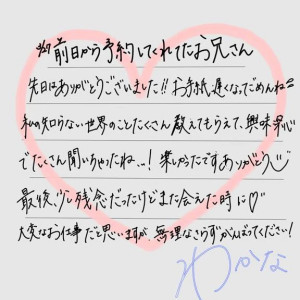 4/27 前日から予約してくれてたお兄さん
先日はありがとうございました!! お手紙、遅くなってごめんね
私の知らない世界のことたくさん教えてもらえて、興味深い
でたくさん聞いちゃったね…! 楽しかったですありがとう
最後、少し残念だったけどまた会えた時に♡
大変なお仕事だと思いますが、無理なさらずがんばってください!
わかな